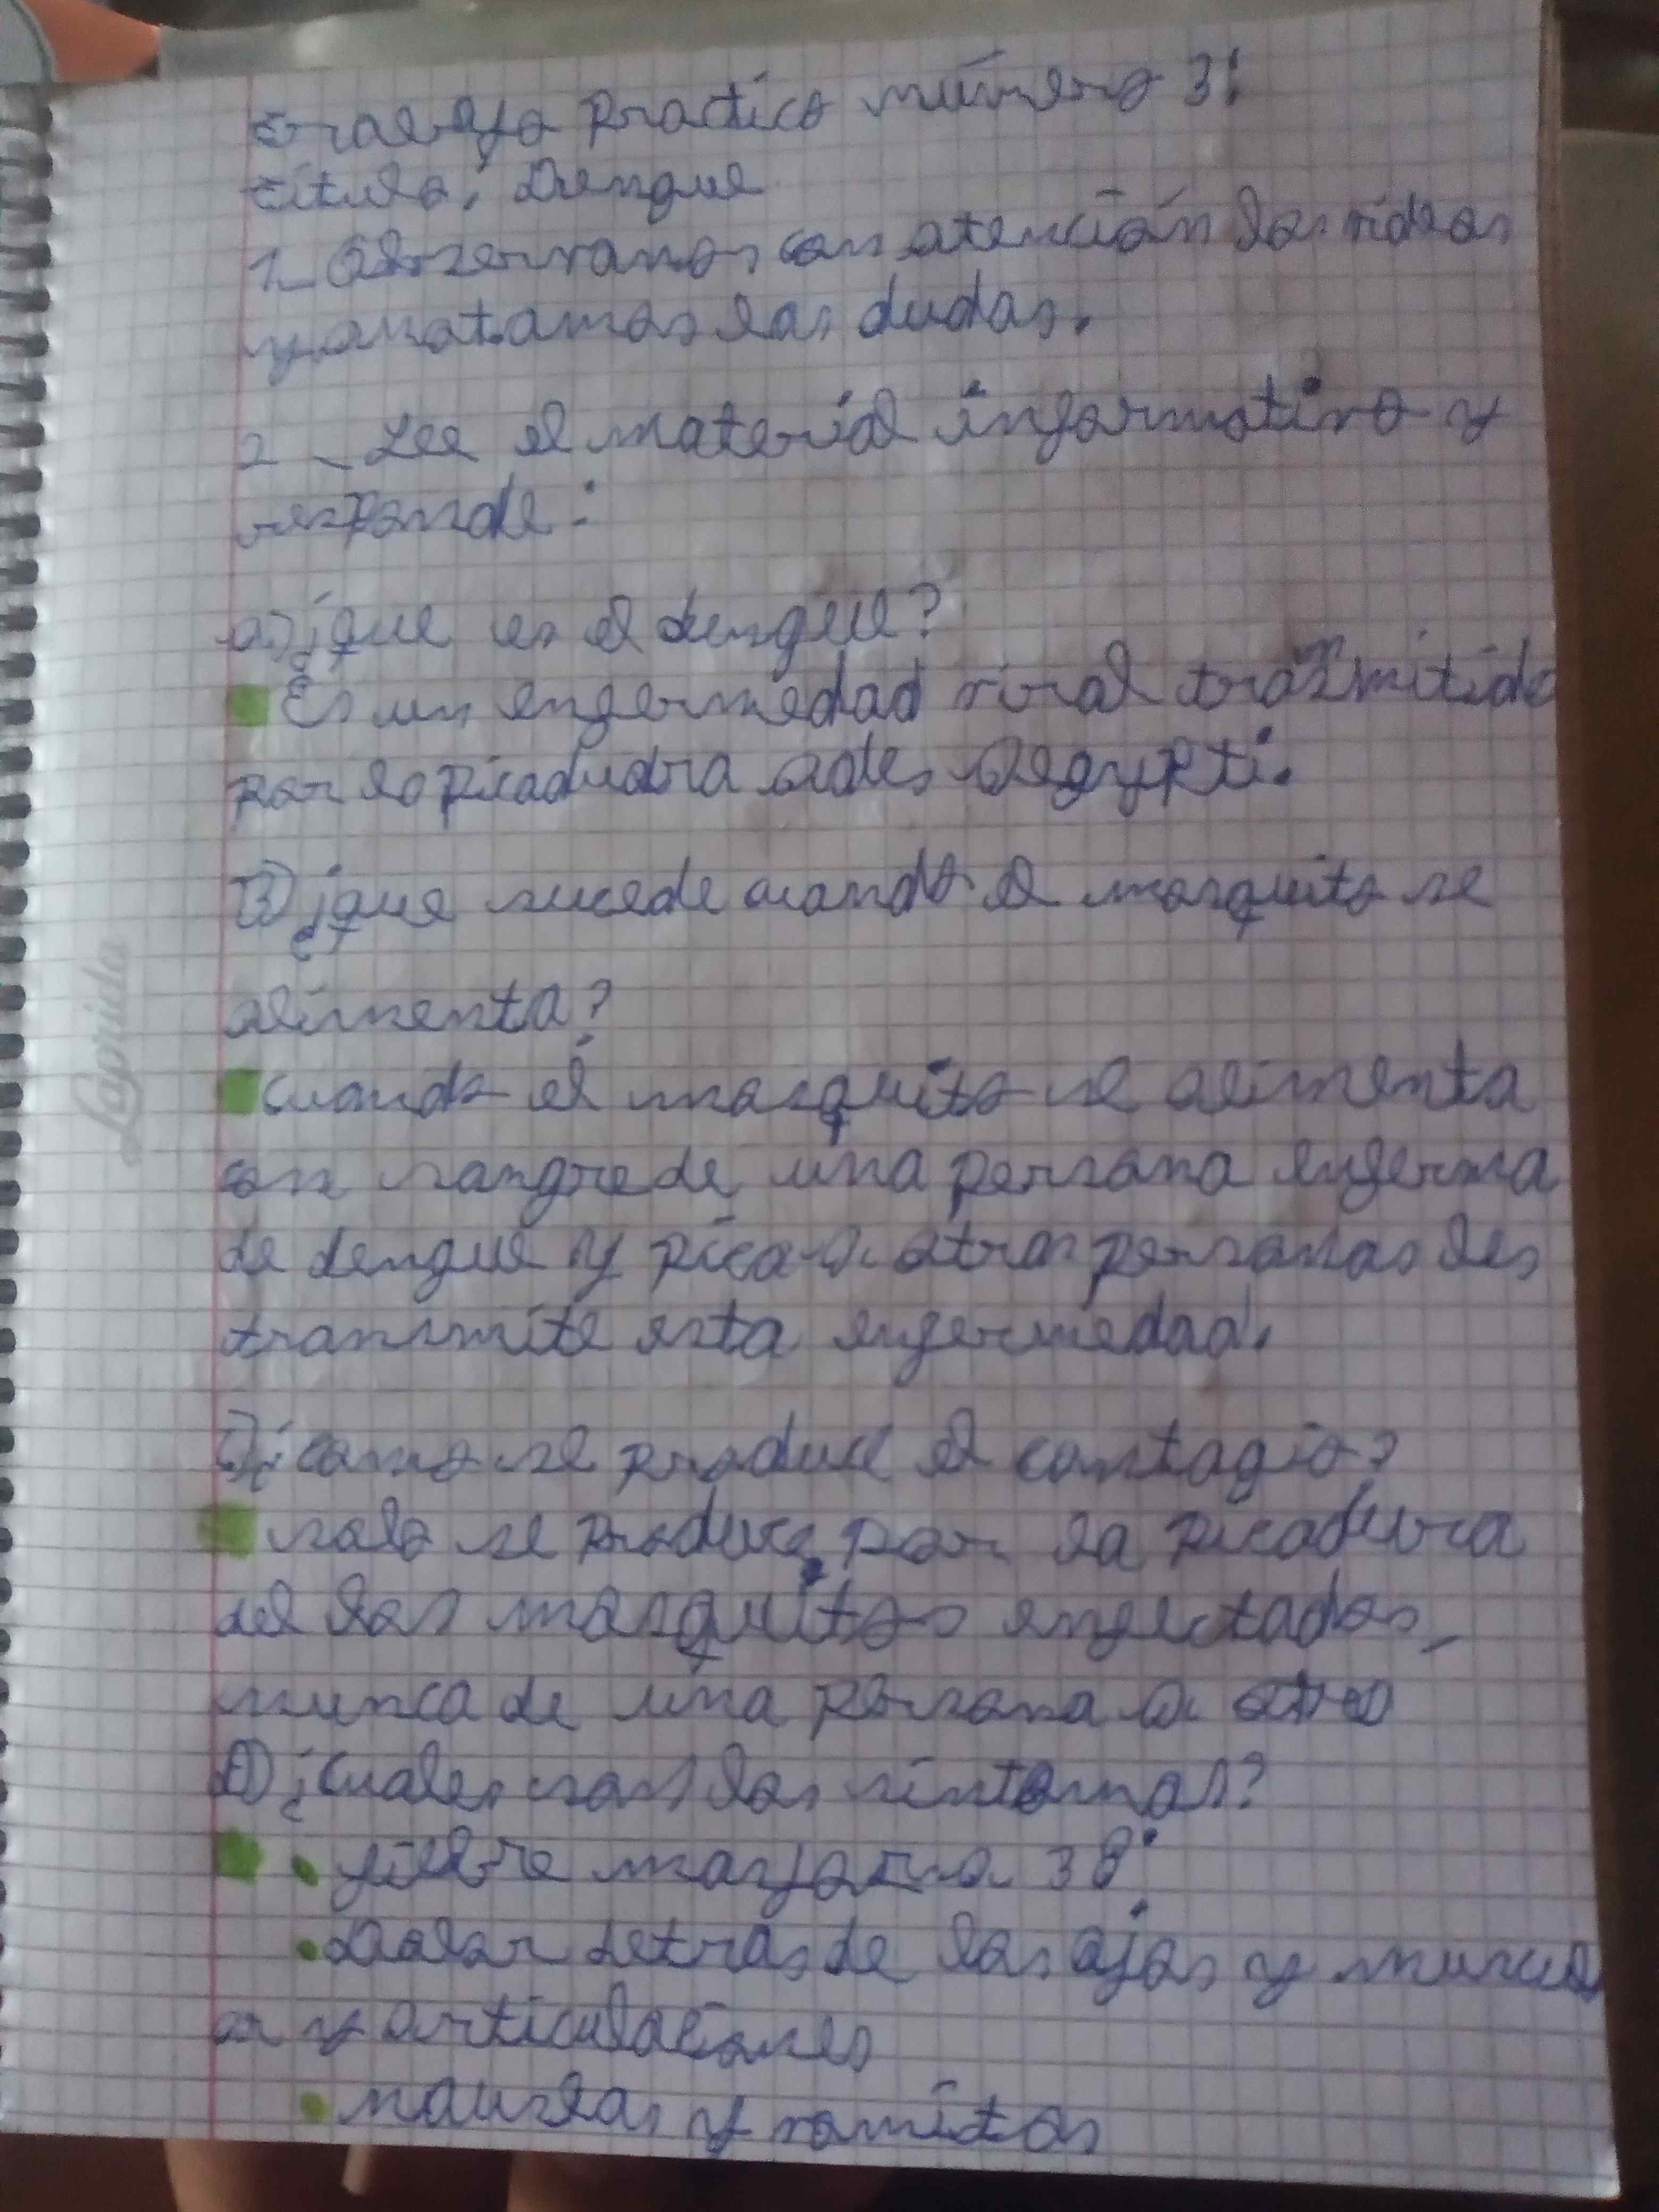 trabajo practico número 3:
título: Dengue
1_ Observamos con atención los videos
y anotamos las dudas.
2 _ Lee el material informativo y
responde:
a) ¿que es el dengue?
Es un enfermedad viral trasmitida
por la picadudra aides Aegypti.
B) ¿que sucede cuando el mosquito se
alimenta?
cuando el mosquito se alimenta
con sangre de una persona enferma
de dengue y pica a otras personas les
transmite esta enfermedad.
C) ¿como se produce el contagio?
solo se produce por la picadura
del los mosquitos enfectados,
nunca de una persona a otra
D) ¿cuales son los sintomas?
• fiebre mayor a 38°
• Dolor detras de los ojos y muscul
ar y articulaciones
• nauseas y vomitos
Laprida